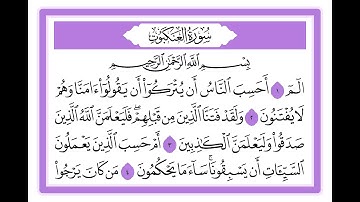 سُورَةُ العَنكَبُوتِ
بِسْمِ ٱللَّهِ ٱلرَّحْمَٰنِ ٱلرَّحِيمِ
الٓمٓ ١ أَحَسِبَ ٱلنَّاسُ أَن يُتْرَكُوٓا۟ أَن يَقُولُوٓا۟ ءَامَنَّا وَهُمْ
لَا يُفْتَنُونَ ٢ وَلَقَدْ فَتَنَّا ٱلَّذِينَ مِن قَبْلِهِمْ ۖ فَلَيَعْلَمَنَّ ٱللَّهُ ٱلَّذِينَ
صَدَقُوا۟ وَلَيَعْلَمَنَّ ٱلْكَٰذِبِينَ ٣ أَمْ حَسِبَ ٱلَّذِينَ يَعْمَلُونَ
ٱلسَّيِّـَٔاتِ أَن يَسْبِقُونَا ۚ سَآءَ مَا يَحْكُمُونَ ٤ مَن كَانَ يَرْجُوا۟